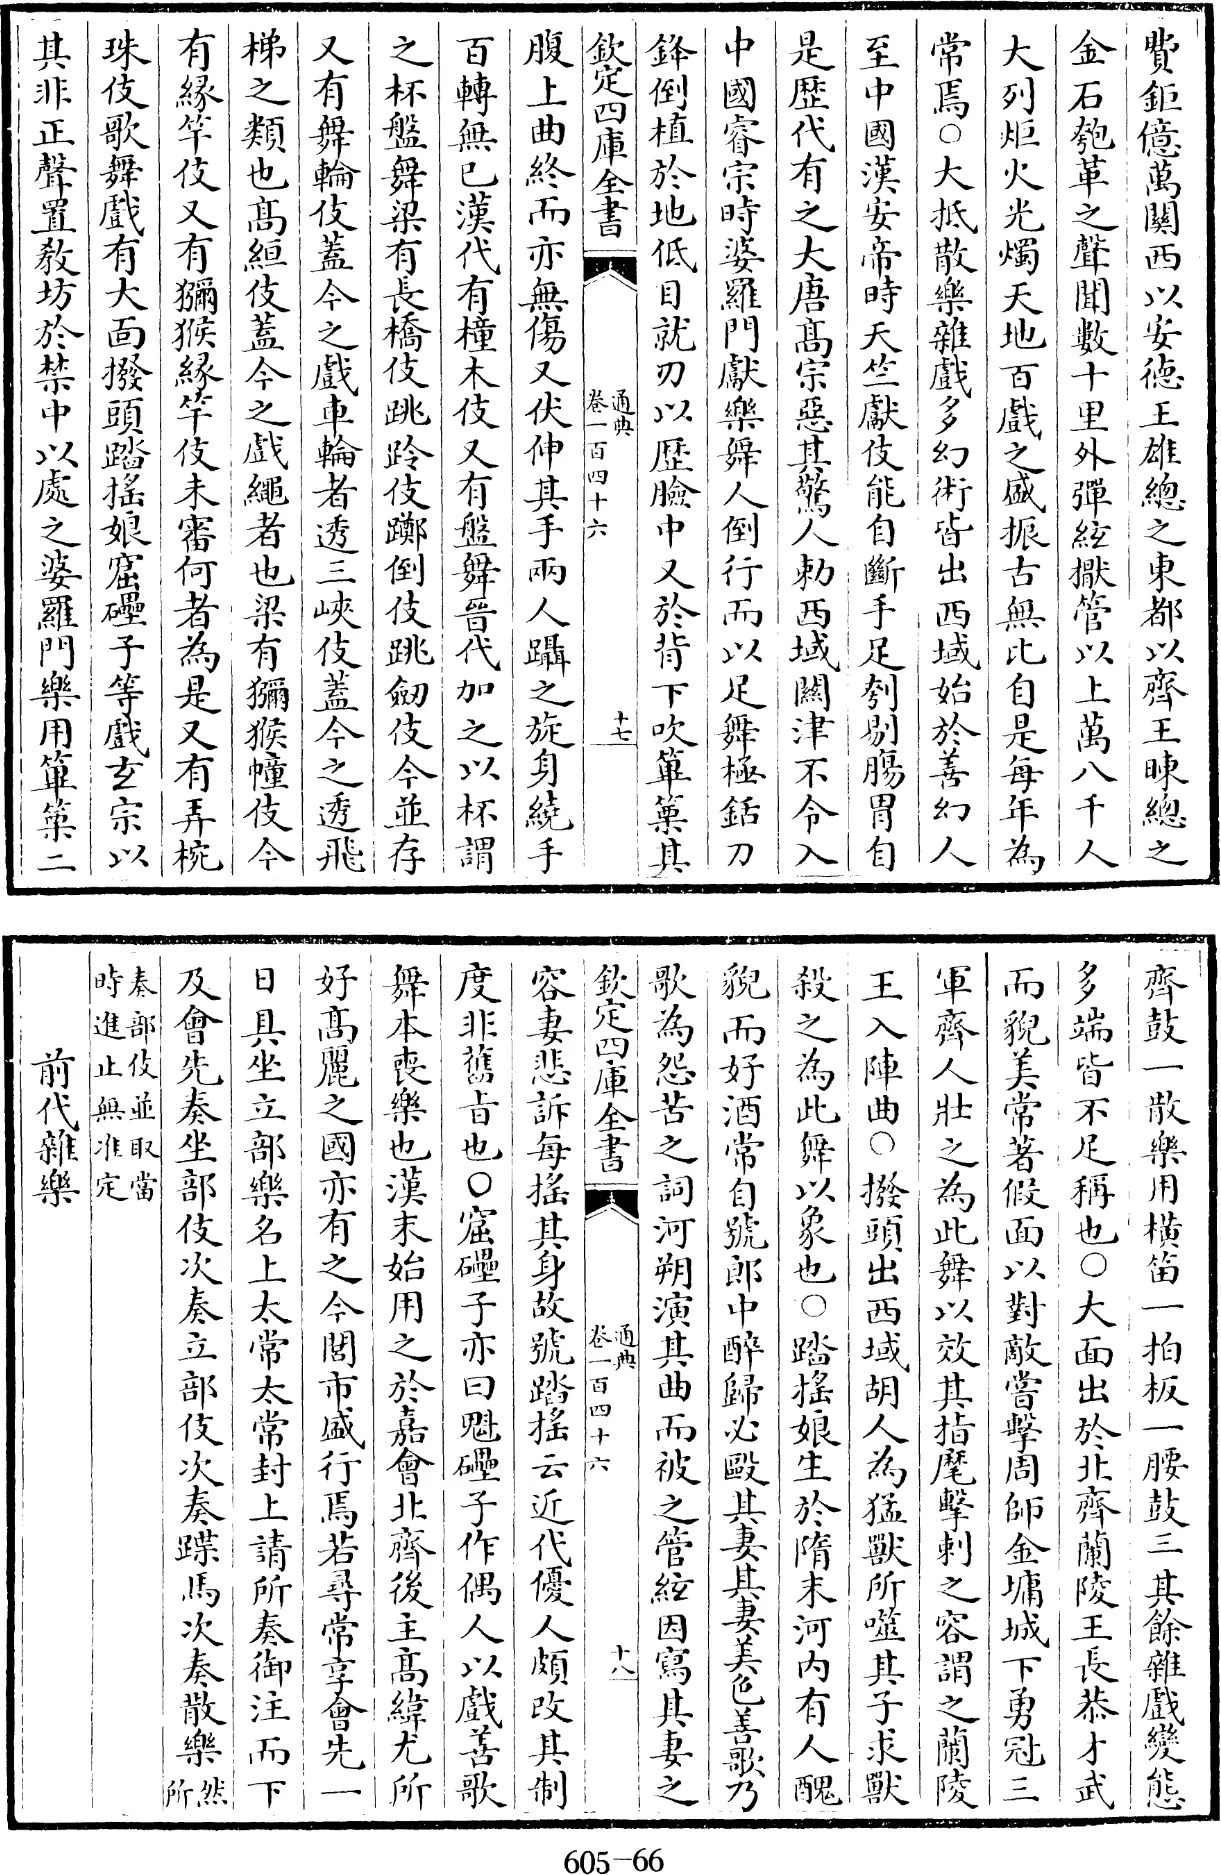 費鉅億萬關西以安德王雄總之東都以齊王暕總之
金石匏革之聲聞數十里外彈絃擫管以上萬八千人
大列炬火光燭天地百戲之盛振古無比自是每年為
常焉○大抵散樂雜戲多幻術皆出西域始於善幻人
至中國漢安帝時天竺獻伎能自斷手足刳剔腸胃自
是歷代有之大唐髙宗惡其驚人勅西域關津不令入
中國睿宗時婆羅門獻樂舞人倒行而以足舞極銛刀
鋒倒植於地低目就刃以歷臉中又於背下吹篳篥其
欽定四庫全書
通典
卷一百四十六
十七
腹上曲終而亦無傷又伏伸其手兩人躡之旋身繞手
百轉無已漢代有橦木伎又有盤舞晉代加之以杯謂
之杯盤舞梁有長橋伎跳跉伎躑倒伎跳劒伎今並存
又有舞輪伎蓋今之戲車輪者透三峽伎蓋今之透飛
梯之類也髙絙伎蓋今之戲繩者也梁有獼猴幢伎今
有縁竿伎又有獼猴縁竿伎未審何者為是又有弄椀
珠伎歌舞戲有大面撥頭踏搖娘窟礧子等戲玄宗以
其非正聲置教坊於禁中以處之婆羅門樂用篳篥二
齊鼓一散樂用橫笛一拍板一腰鼓三其餘雜戲變態
多端皆不足稱也○大面出於北齊蘭陵王長恭才武
而貌美常著假面以對敵嘗擊周師金墉城下勇冠三
軍齊人壯之為此舞以效其指麾擊刺之容謂之蘭陵
王入陣曲○撥頭出西域胡人為猛獸所噬其子求獸
殺之為此舞以象也○踏搖娘生於隋末河内有人醜
貌而好酒常自號郎中醉歸必毆其妻其妻美色善歌乃
歌為怨苦之詞河朔演其曲而被之管絃因寫其妻之
欽定四庫全書
通典
卷一百四十六
十八
容妻悲訴每搖其身故號踏搖云近代優人頗改其制
度非舊㫖也○窟礧子亦曰魁礧子作偶人以戲善歌
舞本喪樂也漢末始用之於嘉會北齊後主髙緯尤所
好髙麗之國亦有之今閭市盛行焉若尋常享會先一
日具坐立部樂名上太常太常封上請所奏御注而下
及會先奏坐部伎次奏立部伎次奏蹀馬次奏散樂然所
奏部伎並取當
時進止無准定
前代雜樂
605-66